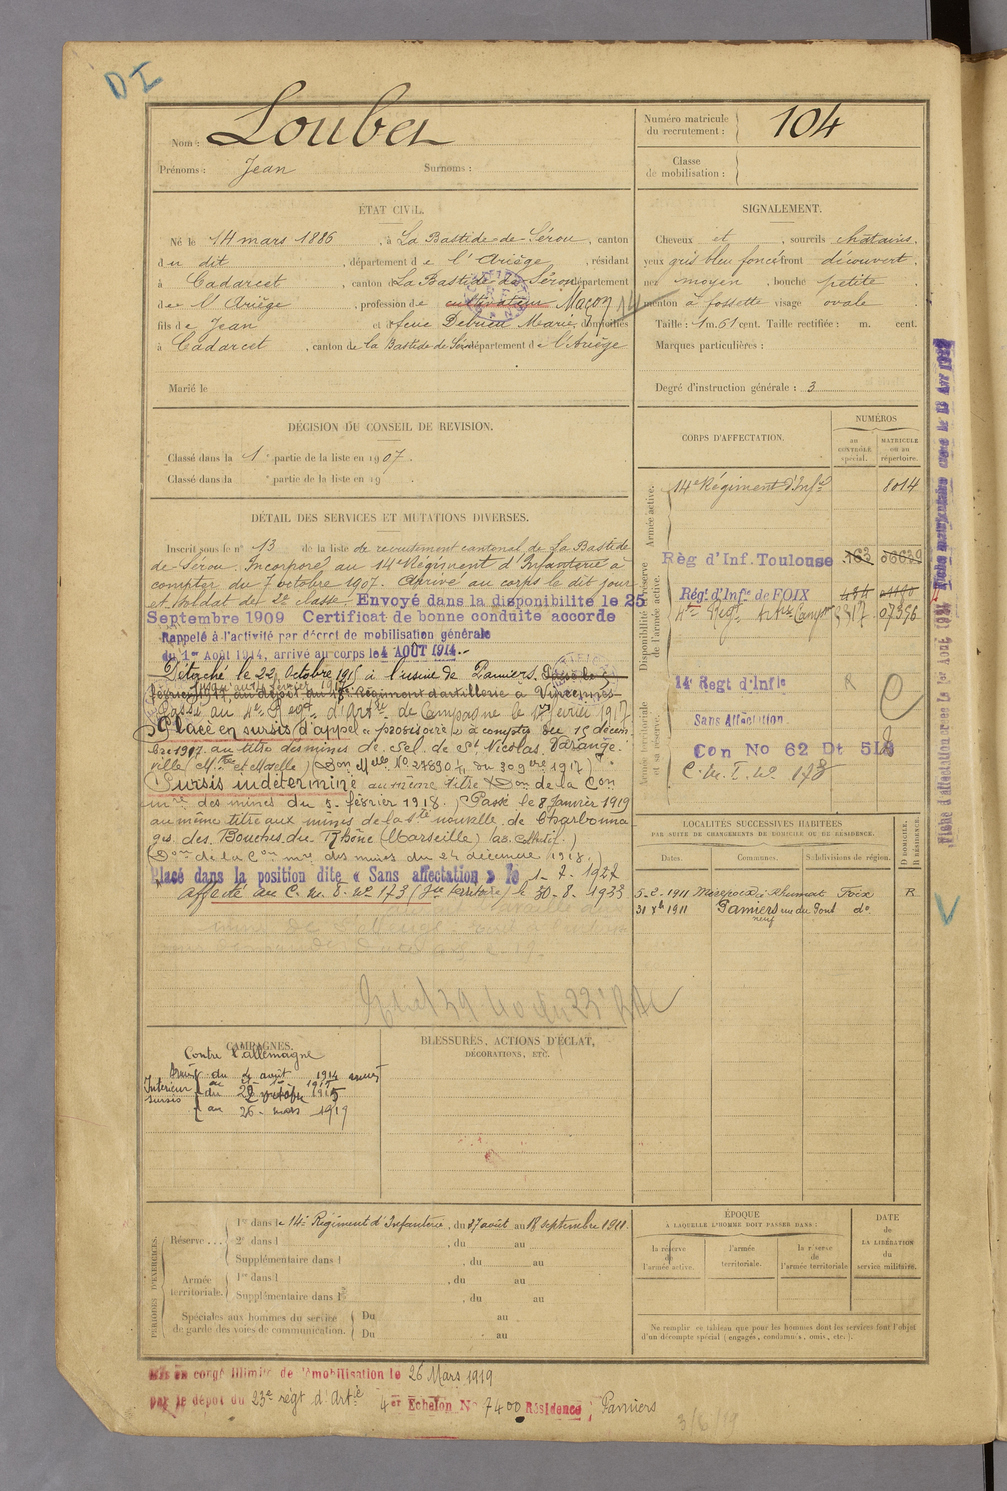 DI
Nom : Loubet
Prénoms : Jean Surnoms :
Numéro matricule du recrutement : 104
Classe de mobilisation :
ÉTAT CIVIL.
Né le 14 mars 1886, à La Bastide-de-Sérou, canton
du dit, département de l'Ariège, résidant
à Cadarcet, canton de La Bastide de Sérou département
de l'Ariège, profession de cultivateur Maçon 14
fils de Jean et de feue Debrieu Marie, domiciliés
à Cadarcet, canton de la Bastide de Sérou département de l'Ariège
Marié le
SIGNALEMENT.
Cheveux et , sourcils châtains,
yeux gris bleu foncé front découvert,
nez moyen, bouche petite
menton à fossette visage ovale
Taille : 1 m. 61 cent. Taille rectifiée : m. cent.
Marques particulières :
Degré d'instruction générale : 3
DÉCISION DU CONSEIL DE REVISION.
Classé dans la 1e partie de la liste en 1907.
Classé dans la partie de la liste en 19
CORPS D'AFFECTATION.
NUMÉROS
AU CONTRÔLE spécial.
MATRICULE OU AU répertoire.
Armée active.
14e Régiment d'Infie 8014
Disponibilité et réserve de l'armée active.
Règ d'Inf. Toulouse 163 06639
Rég. d'Infie de FOIX
4e Régt d'Arte Campe 2317 07356
Armée territoriale et sa réserve.
14 Regt d'Infie
Sans Affectation
Con No 62 Dt 518
C. M. I. No 173
DÉTAIL DES SERVICES ET MUTATIONS DIVERSES.
Inscrit sous le n° 13 de la liste de recrutement cantonal de La Bastide
de Sérou. Incorporé au 14e Régiment d'Infanterie à
compter du 7 octobre 1907. Arrivé au corps le dit jour
et soldat de 2e classe. Envoyé dans la disponibilité le 25
Septembre 1909 Certificat de bonne conduite accordé
Rappelé à l'activité par décret de mobilisation générale
du 1er Août 1914, arrivé au corps le 4 AOÛT 1914.
Détaché le 22 Octobre 1915 à l'usine de Pamiers.
Passé au 4e Régt d'Artie de Campagne le 1er février 1917
Placé en sursis d'appel « provisoire » à compter du 15 décem
bre 1917 au titre des mines de Sel de St Nicolas Varange-
ville (Mthe et Moselle) Don Melle No 24890 du 30 9bre 1917
Sursis indéterminé au même titre Don de la Con
mre des mines du 5. février 1918. Passé le 8 Janvier 1919
au même titre aux mines de la Sté nouvelle de Charbonna
ges des Bouches du Rhône (Marseille)
Don de la Con mre des mines du 24 décembre 1918.
Placé dans la position dite « Sans affectation » le 1-7-1927
Affecté au C. M. I. No 173 le 30-8-1933
LOCALITÉS SUCCESSIVES HABITÉES
PAR SUITE DE CHANGEMENTS DE DOMICILE OU DE RÉSIDENCE.
Dates. Communes. Subdivisions de région. D DOMICILE. R RÉSIDENCE.
5-2-1911 Foix R
31 xb 1911 Pamiers rue du Pont neuf do
CAMPAGNES.
Contre l'Allemagne
du 4 août 1914
Intérieur sursis du 22 octobre 1915
au 26 mars 1919
BLESSURES, ACTIONS D'ÉCLAT,
DÉCORATIONS, ETC.
PÉRIODES D'EXERCICES.
Réserve ... 1re dans le 14e Régiment d'Infanterie, du 27 août au 18 septembre 1911.
2e dans l , du au
Supplémentaire dans l , du au
Armée territoriale. 1re dans l , du au
Supplémentaire dans l , du au
Spéciales aux hommes du service de garde des voies de communication. Du au
Du au
ÉPOQUE
À LAQUELLE L'HOMME DOIT PASSER DANS :
la réserve de l'armée active.
l'armée territoriale.
la réserve de l'armée territoriale
DATE de LA LIBÉRATION du service militaire.
Ne remplir ce tableau que pour les hommes dont les services font l'objet
d'un décompte spécial (engagés, condamnés, omis, etc.).
Mis en congé illimité de démobilisation le 26 Mars 1919
par le dépôt du 23e régt d'Artie 4er Echelon No 7400 Résidence ; Pamiers
3/6/19